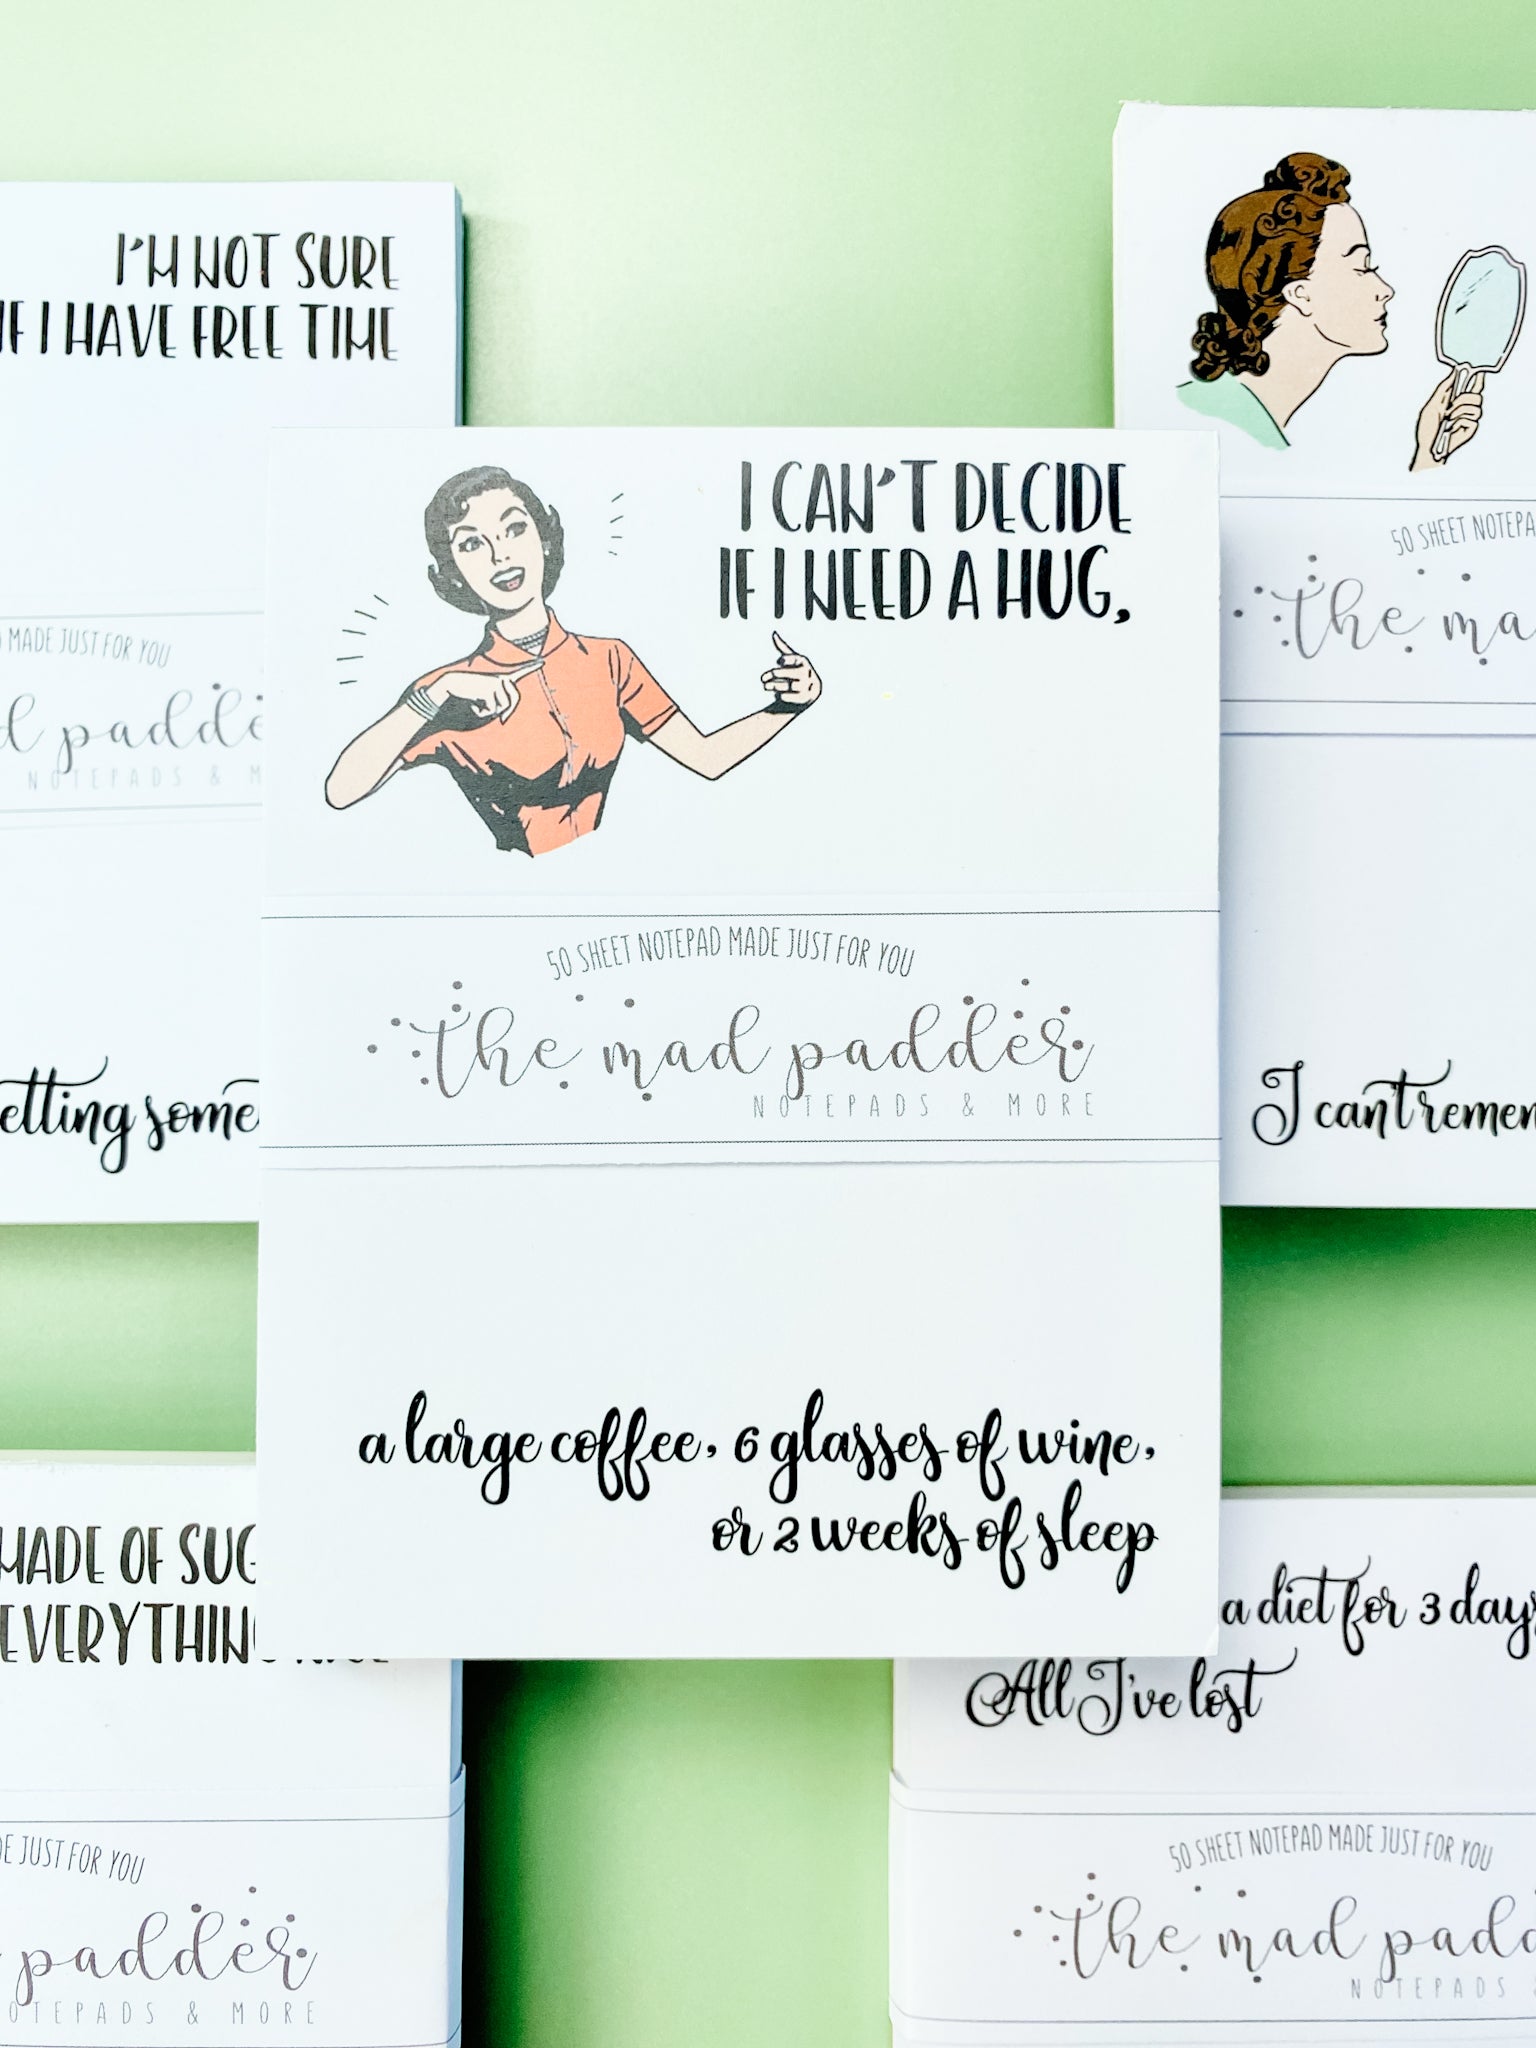 I'M NOT SURE
IF I HAVE FREE TIME
MADE JUST FOR YOU
NOTEPADS &
etting some
50 SHEET
the
I can't
I CAN'T DECIDE
IF I NEED A HUG,
50 SHEET NOTEPAD MADE JUST FOR YOU
the mad padder
NOTEPADS & MORE
a large coffee, 6 glasses of wine,
or 2 weeks of sleep
MADE OF
JUST FOR YOU
padder
NOTEPADS & MORE
a diet for 3 days
All I've lost
50 SHEET NOTEPAD MADE JUST FOR YOU
the mad